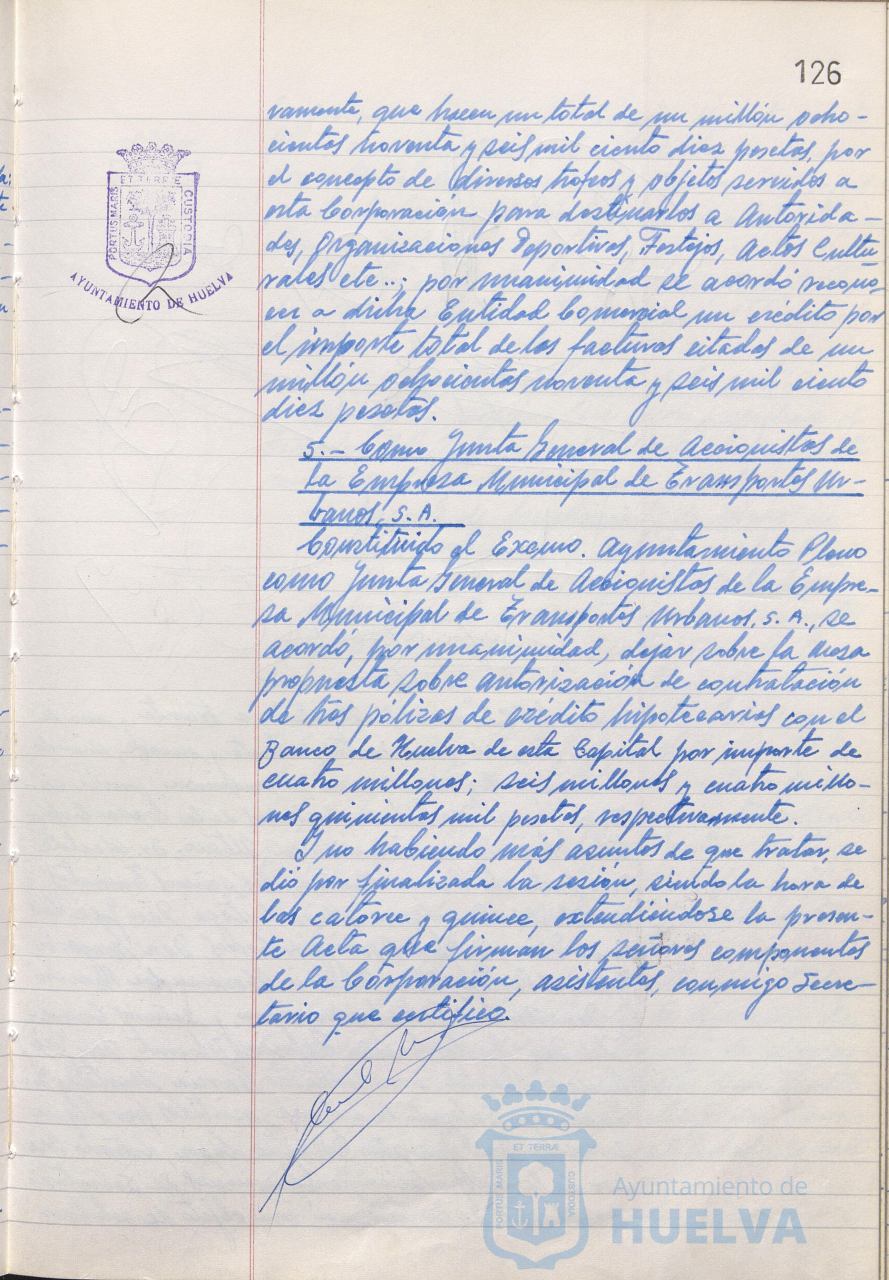 126
vamente, que hacen un total de un millón ocho-
cientas noventa y seis mil ciento diez pesetas, por
el concepto de diversos trofeos y objetos servidos a
esta Corporación para destinarlos a Autorida-
des, Organizaciones Deportivas, Festejos, Actos Cultu-
rales etc..; por unanimidad se acordó recono-
cer a dicha Entidad Comercial un crédito por
el importe total de las facturas citadas de un
millón ochocientas noventa y seis mil ciento
diez pesetas.
5.- Como Junta General de Accionistas de
la Empresa Municipal de Transportes Ur-
banos, S.A.
Constituido el Excmo. Ayuntamiento Pleno
como Junta General de Accionistas de la Empre-
sa Municipal de Transportes Urbanos, S.A., se
acordó, por unanimidad, dejar sobre la mesa
propuesta sobre autorización de contratación
de tres pólizas de crédito hipotecarios con el
Banco de Huelva de esta Capital por importe de
cuatro millones; seis millones y cuatro millo-
nes quinientas mil pesetas, respectivamente.
Y no habiendo más asuntos de que tratar, se
dió por finalizada la sesión, siendo la hora de
las catorce y quince, extendiéndose la presen-
te Acta que firman los señores componentes
de la Corporación, asistentes, conmigo Secre-
tario que certifico.
PORTUS MARIS ET TERRE CUSTODIA
AYUNTAMIENTO DE HUELVA
PORTUS MARIS ET TERRÆ CUSTODIA
Ayuntamiento de
HUELVA